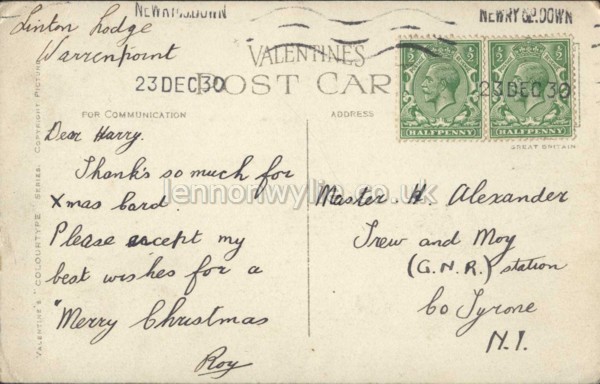 Linton Lodge
Warrenpoint
NEWRY CO. DOWN
NEWRY CO. DOWN
23 DEC 30
23 DEC 30
VALENTINE'S
POST CARD
HALFPENNY
HALFPENNY
FOR COMMUNICATION
ADDRESS
GREAT BRITAIN
VALENTINE'S "COLOURTYPE" SERIES. COPYRIGHT PICTURE
Dear Harry.
Thanks so much for
Xmas Card.
Please accept my
best wishes for a
"Merry Christmas
Roy
Master. H. Alexander
Trew and Moy
(G.N.R.) station
Co Tyrone
N.I.
lennonwylie.co.uk